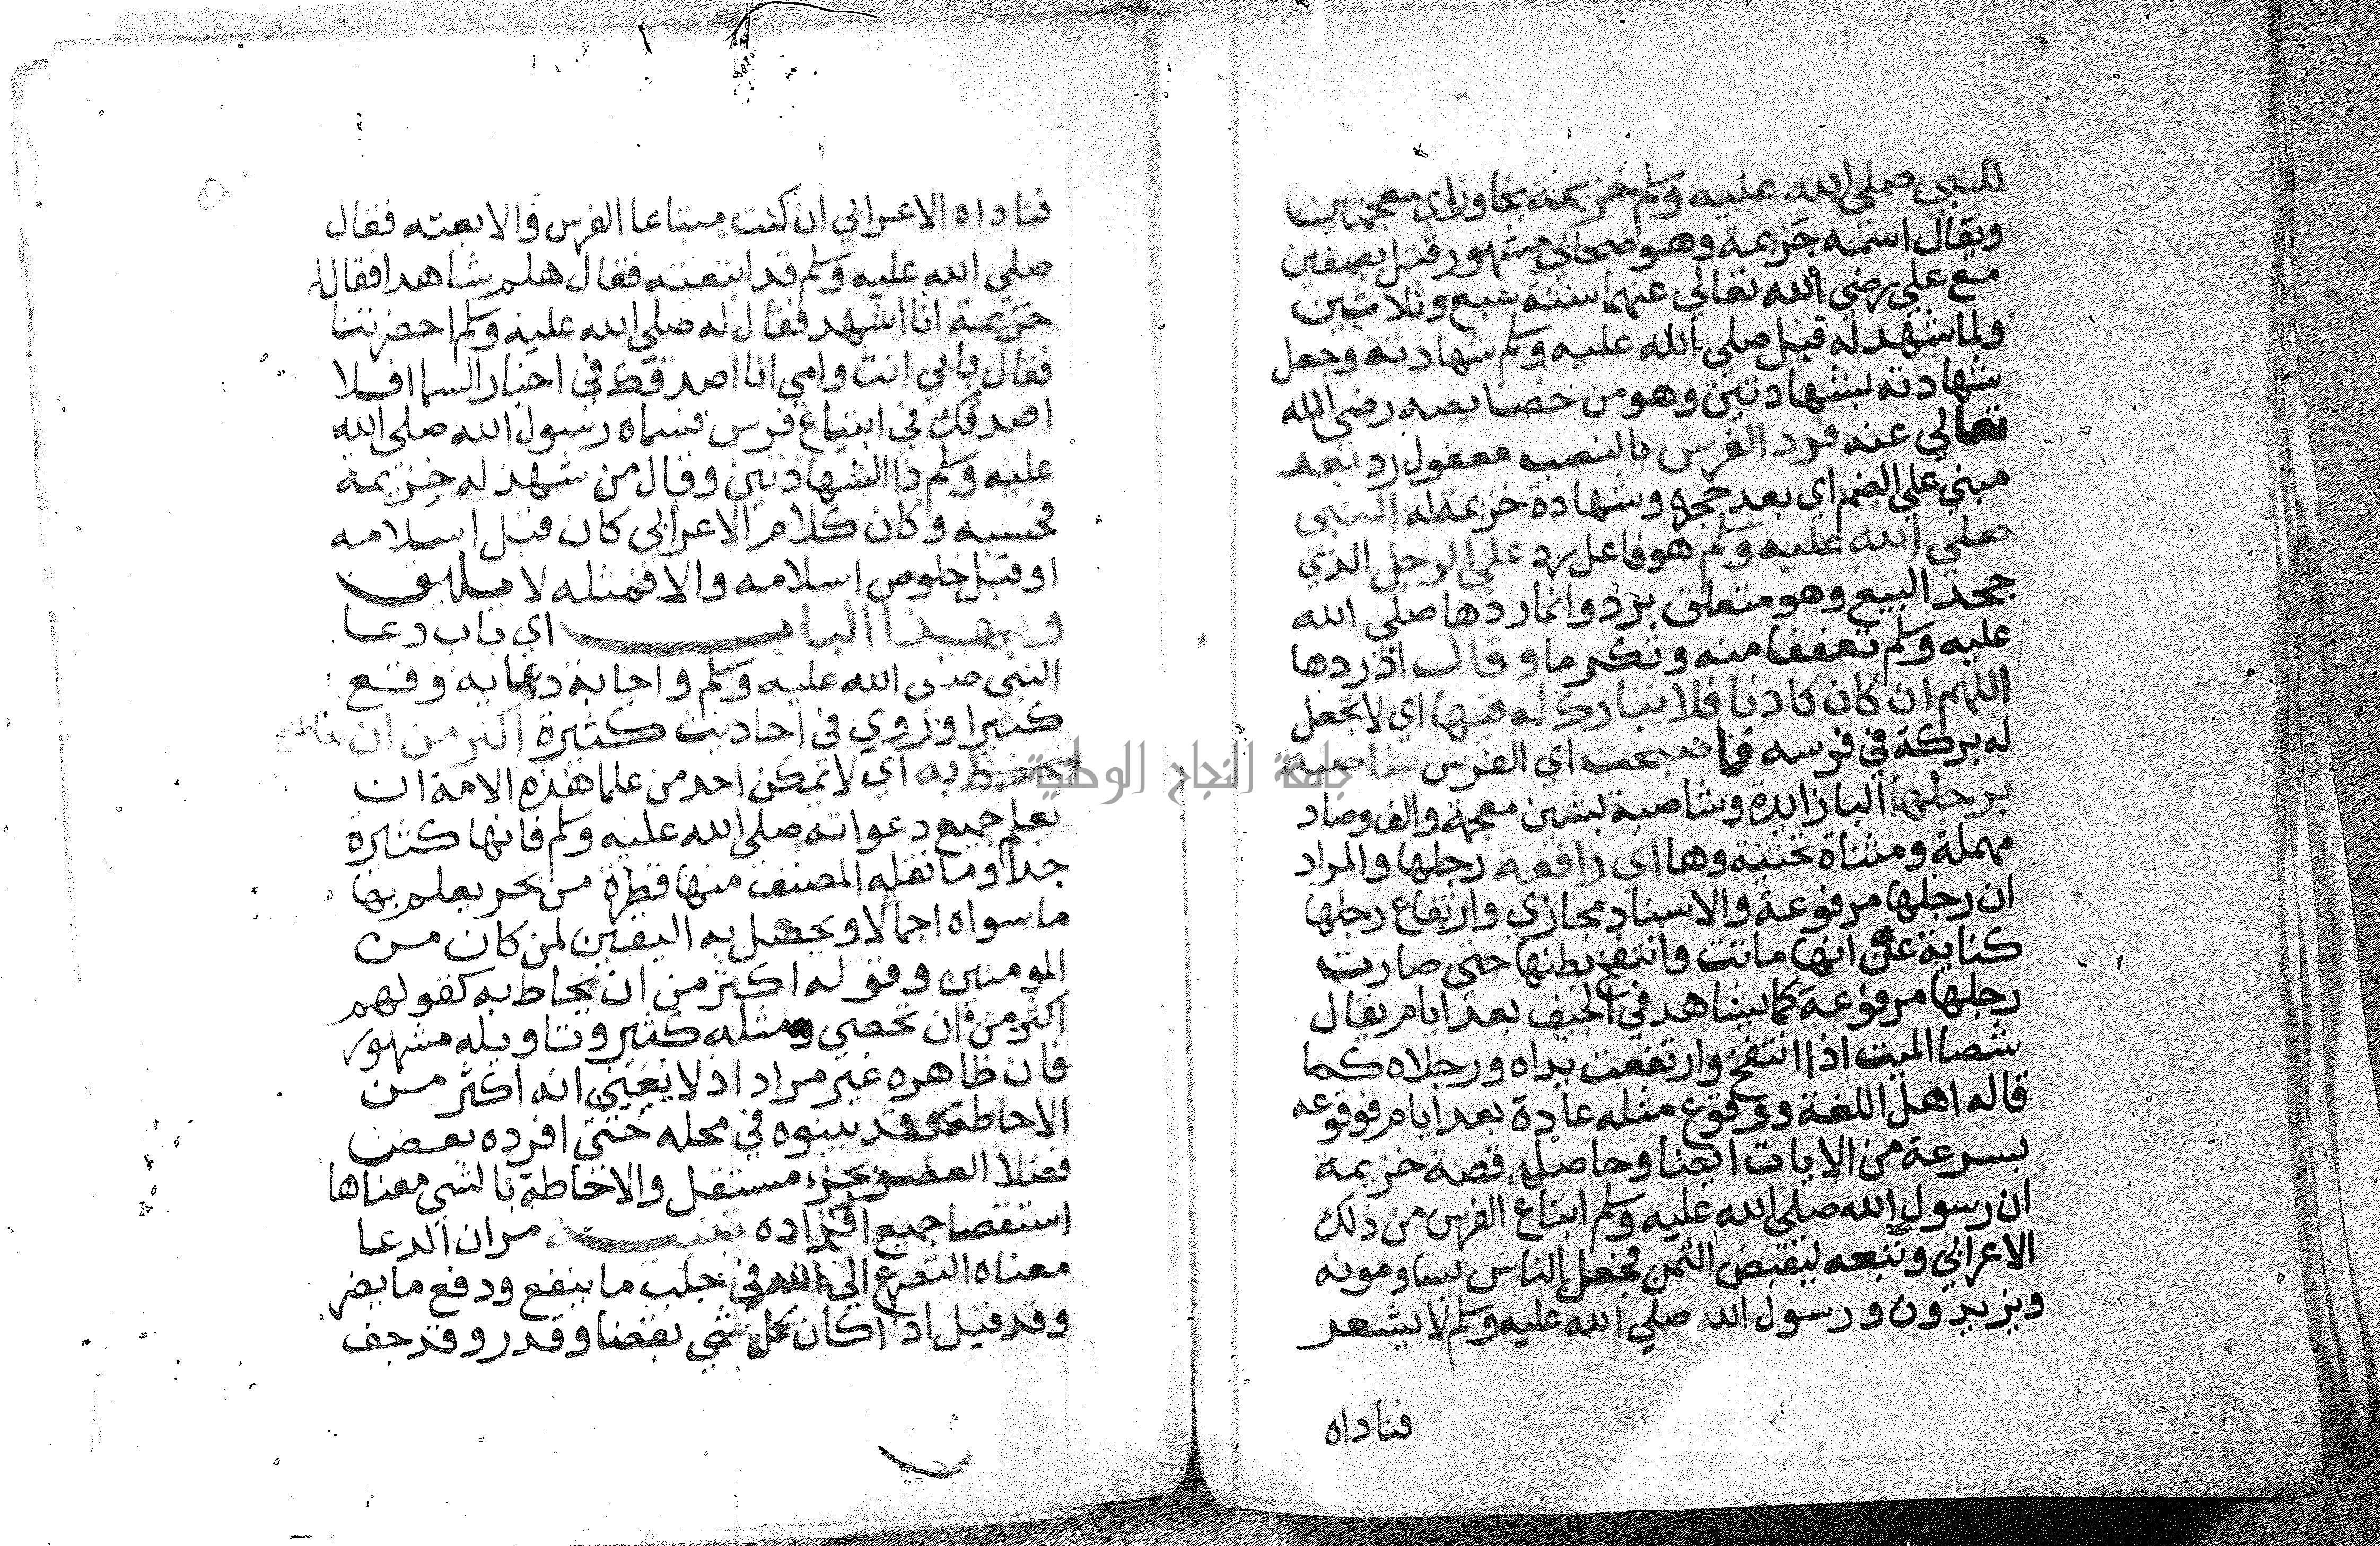 للنبي صلي الله عليه وسلم خزيمة بخا وزاي معجمتين
ويقال اسمه جَزيمة وهو صحابي مشهور قتل بصفين
مع علي رضي الله تعالي عنهما سنة سبع وثلاثين
ولما شهد له قبل صلي الله عليه وسلم شهادته وجعل
شهادته بشهادتين وهو من خصايصه رضي الله
تعالي عنه فرد الفرس بالنصب مفعول رد بعد
مبني علي الضم اي بعد جحده وشهادة خزيمه له النبي
صلي الله عليه وسلم هو فاعل رد علي الرجل الذي
جحد البيع وهو متعلق برد وانما ردها صلي الله
عليه وسلم تعففا منه وتكرما وقال اذ ردها
اللهم ان كان كاذبا فلا تبارك له فيها اي لا تجعل
له بركة في فرسه فاصبحت اي الفرس شاصية
برجلها البا زايدة وشاصية بشين معجمة والف وصاد
مهملة ومثناة تحتية وها اي رافعة رجلها والمراد
ان رجلها مرفوعة والاسناد مجازي وارتفاع رجلها
كناية عن انها ماتت وانتفخ بطنها حتي صارت
رجلها مرفوعة كما يشاهد في الجيف بعد ايام يقال
شصا الميت اذا انتفخ وارتفعت يداه ورجلاه كما
قاله اهل اللغة ووقوع مثله عادة بعد ايام فوقوعه
بسرعة من الايات ايضا وحاصل قصة خزيمة
ان رسول الله صلي الله عليه وسلم ابتاع الفرس من ذلك
الاعرابي وتبعه ليقبض الثمن فجعل الناس يساومونه
ويزيدون ورسول الله صلي الله عليه وسلم لا يشعر
فناداه
فناداه الاعرابي ان كنت مبتاعا الفرس والا بعته فقال
صلي الله عليه وسلم قد ابتعته فقال هلم شاهدا فقال له
خزيمة انا اشهد فقال له صلي الله عليه وسلم احضرتنا
فقال بابي انت وامي انا اصدقك في اخبار السما افلا
اصدقك في ابتياع فرس فسماه رسول الله صلي الله
عليه وسلم ذا الشهادتين وقال من شهد له خزيمة
فحسبه وكان كلام الاعرابي كان قبل اسلامه
او قبل خلوص اسلامه والا فمثله لا يليق
وبهذا الباب اي باب دعا
النبي صلي الله عليه وسلم واجابة دعايه وقع
كثيرا وروي في احاديث كثيرة اكبر من ان يحاط
به اي لا يمكن احد من علما هذه الامة ان
يعلم جميع دعواته صلي الله عليه وسلم فانها كثيرة
جدا وما نقله المصنف منها قطرة من بحر يعلم بها
ما سواه اجمالا ويحصل به اليقين لمن كان من
المومنين وقوله اكثر من ان يحاط به كقولهم
اكثر من ان تحصي ومثله كثير وتاويله مشهور
فان ظاهره غير مراد اذ لا يعني انه اكثر من
الاحاطة وقد بينوه في محله حتي افرده بعض
فضلا العصر بجزء مستقل والاحاطة بالشي معناها
استقصا جميع افراده تنبيه مر ان الدعا
معناه التضرع الي الله في جلب ما ينفع ودفع ما يضر
وقد قيل اذا كان كل شي بقضا وقدر وقد جف
جامعة النجاح الوطنية